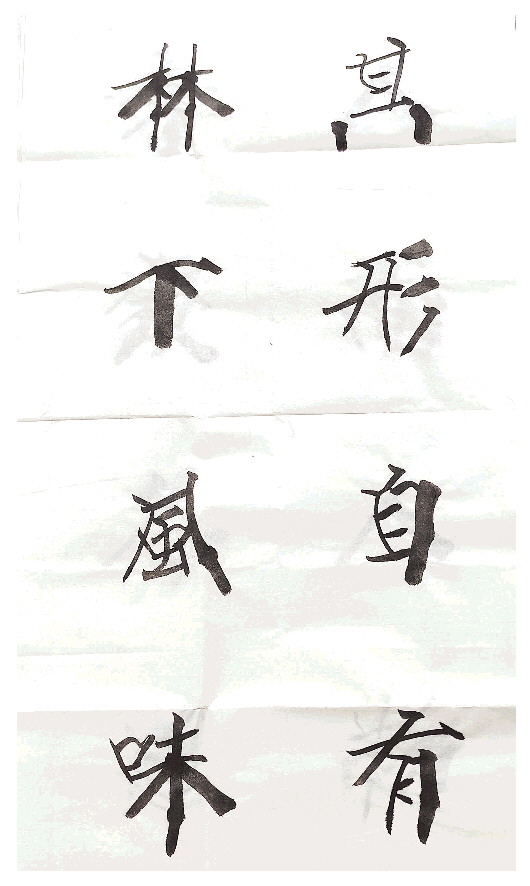 其形自有
林下風味